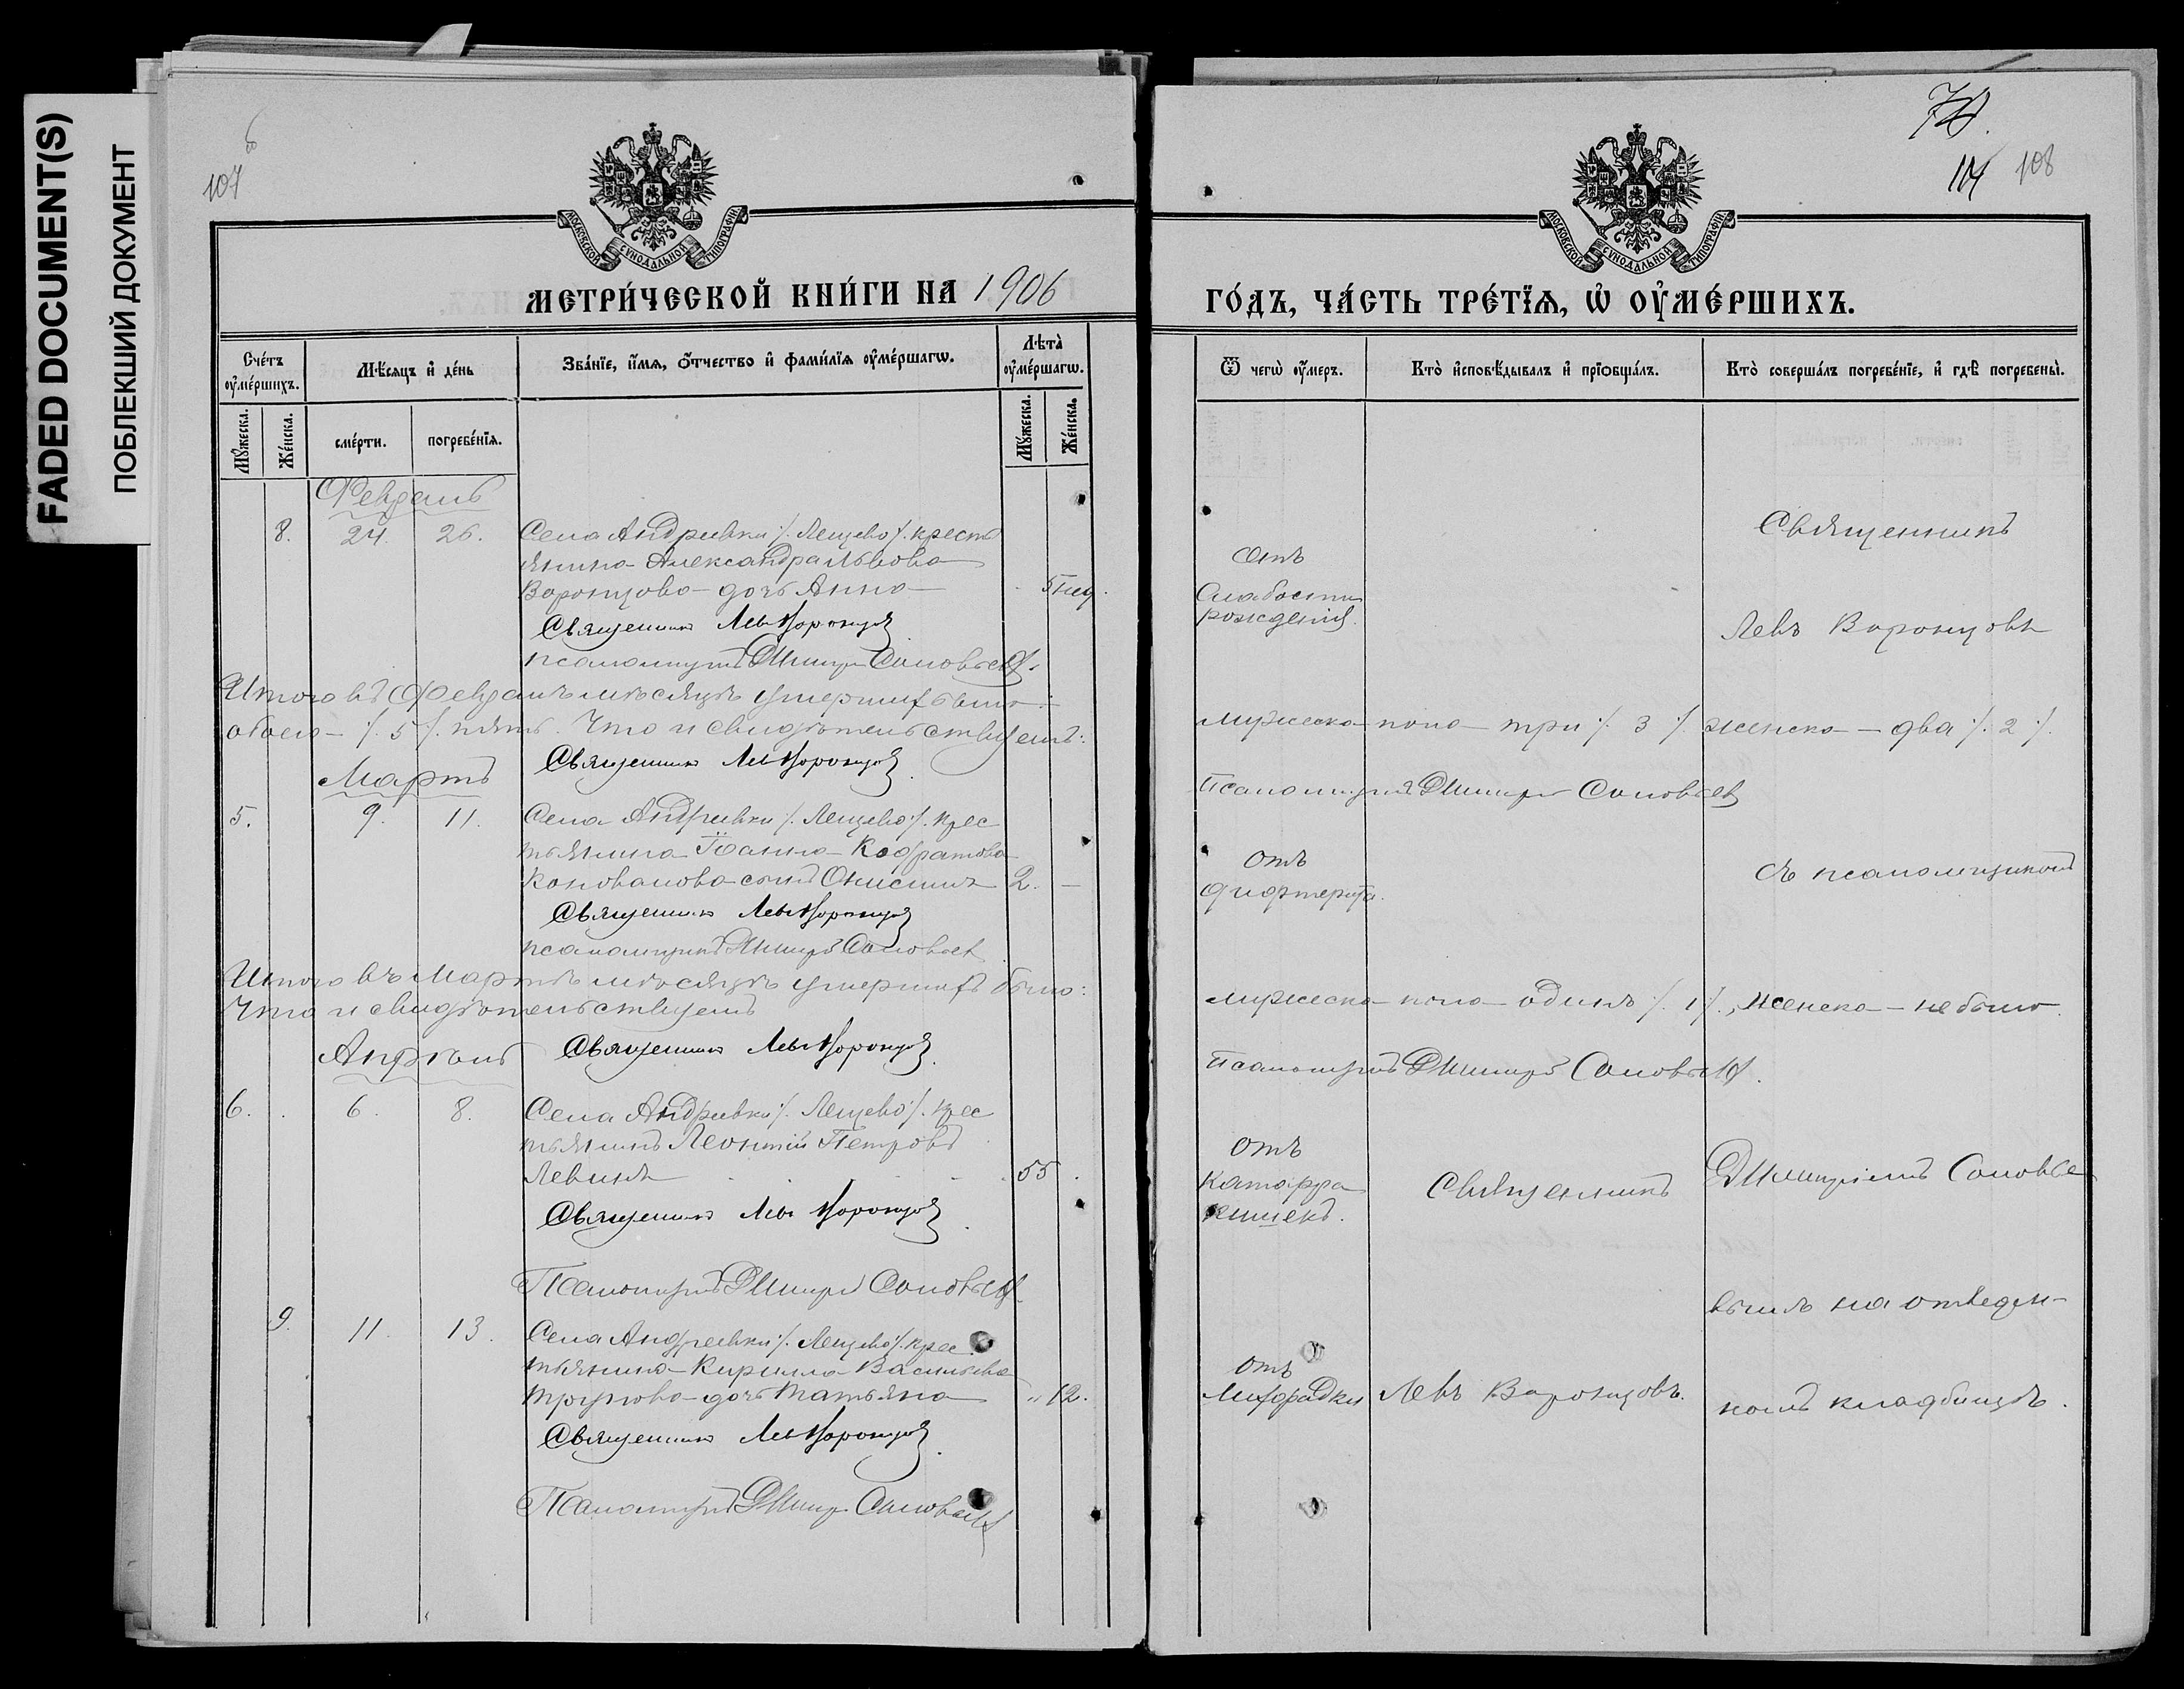 FADED DOCUMENT(S)
ПОБЛЕКШИЙ ДОКУМЕНТ
107
МОСКОВСКОЙ СѴНОДАЛЬНОЙ ТИПОГРАФІИ
МЕТРИ́ЧЕСКОЙ КНИ́ГИ НА 1906
Сче́тъ оу҆ме́ршихъ.
Мѣ́сяцъ и҆ де́нь
Зва́нїе, и҆́мя, ѻ҆́тчество и҆ фами́лїя оу҆ме́ршагѡ.
Лѣта̀ оу҆ме́ршагѡ.
Мꙋ́жеска.
Же́нска.
сме́рти.
погребе́нїя.
Мꙋ́жеска.
Же́нска.
Февраль
8. 24. 26. Села Андреевки /. Лещево /. кресть
янина Александра Львова
Воронцова дочь Анна 5 нед.
Священникъ Левъ Воронцовъ
псаломщикъ Димитрій Соловьевъ.
Итого въ Февралѣ мѣсяцѣ умершихъ было:
обоего /. 5 /. пять. Что и свидѣтельствуемъ:
Священникъ Левъ Воронцовъ
Мартъ
5. 9. 11. Села Андреевки /. Лещево /. крес
тьянина Іоанна Кодратова
Коновалова сынъ Онисимъ 2. —
Священникъ Левъ Воронцовъ
псаломщикъ Димитрій Соловьевъ
Итого въ Мартѣ мѣсяцѣ умершихъ было:
Что и свидѣтельствуемъ
Священникъ Левъ Воронцовъ.
Апрѣль
6. 6. 8. Села Андреевки /. Лещево /. крес
тьянинъ Леонтій Петровъ
Левинъ 55
Священникъ Левъ Воронцовъ
Псаломщикъ Димитрій Соловьевъ
9. 11. 13. Села Андреевки /. Лещево /. крес
тьянина Кирилла Васильева
Трупова дочь Татьяна „ 12.
Священникъ Левъ Воронцовъ
Псаломщикъ Димитрій Соловьевъ
108
МОСКОВСКОЙ СѴНОДАЛЬНОЙ ТИПОГРАФІИ
ГО́ДЪ, ЧА́СТЬ ТРЕ́ТЇЯ, Ѡ҆ ОУ҆МЕ́РШИХЪ.
Ѿ чегѡ̀ оу҆́меръ.
Кто̀ и҆сповѣ́дывалъ и҆ прїѻбща́лъ.
Кто̀ соверша́лъ погребе́нїе, и҆ гдѣ̀ погребены̀.
Священникъ
Отъ
слабости
рожденія.
Левъ Воронцовъ
мужеска пола три /. 3 /. женска — два /. 2 /.
Псаломщикъ Димитрій Соловьевъ
Отъ
дифтерита.
съ псаломщикомъ
мужеска пола одинъ /. 1 /., женска — не было.
Псаломщикъ Димитрій Соловьевъ.
Отъ
катарра
кишекъ.
Священникъ
Димитріемъ Соловье
вымъ на отведен-
Отъ
лихорадки
Левъ Воронцовъ.
номъ кладбищѣ.